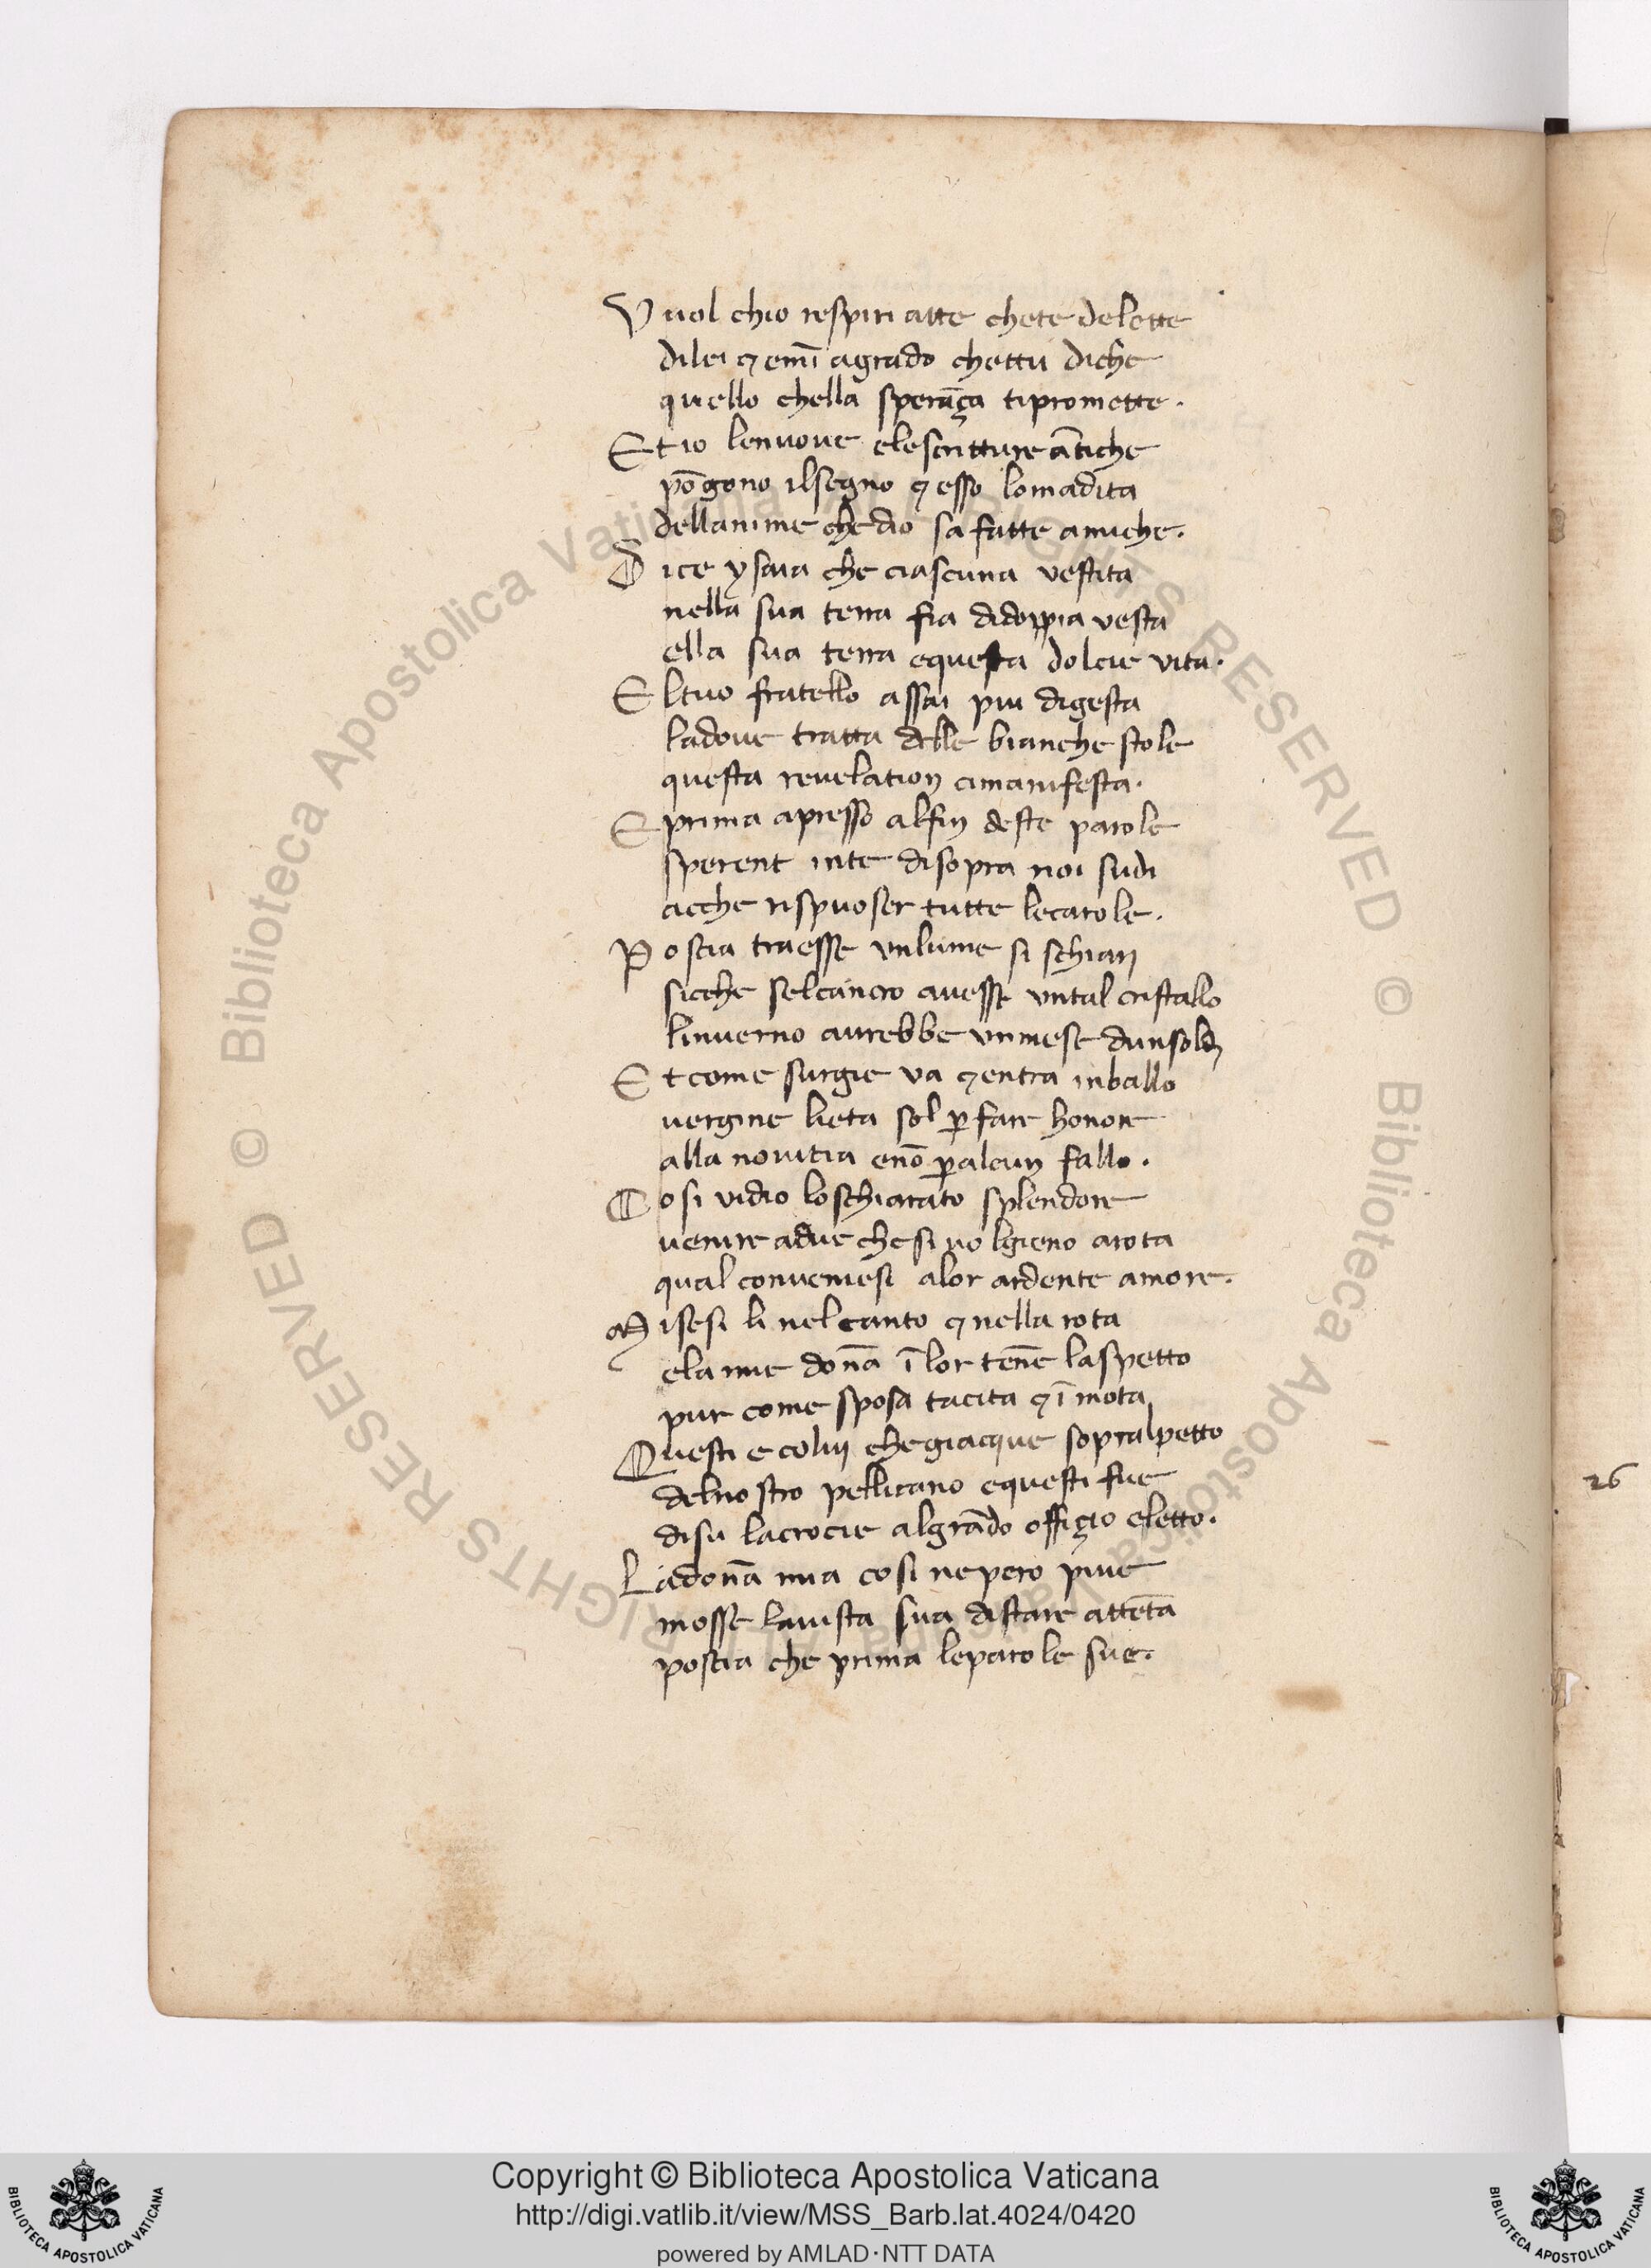 Vuol chio respiri atte chete delette
dilei ⁊ emī agrado chettu diche
quello chella sperāça tipromette.
Et io lenuoue elescritture ātiche
pōgono ilsegno ⁊ esso lomadita
dellanime che dio sa fatte amiche.
Dice ysaia che ciascuna vestita
nella sua terra fia didoppia vesta
ella sua terra equesta dolcie vita.
Eltuo fratello assai piu digesta
ladoue tratta delle bianche stole
questa reuelation cimanifesta.
E prima apresso alfin deste parole
sperent inte disopra noi sudi
acche rispuoser tutte lecarole.
Poscia traesse vnlume si schiari
sicche selcancro auesse vntal cristallo
linuerno aurebbe vnmese dunsoldi
Et come surgie va ⁊ entra inballo
uergine lieta sol ꝑ fare honore
alla nouitia enō ꝑalcun fallo.
Cosi vidio loschiarato splendore
uenire adue chesi uolgieno arota
qual conueniesi alor ardente amore.
Misesi li nelcanto ⁊ nella rota
ela mie donā ī lor tenē laspetto
pur come sposa tacita ⁊ īmota
Questi e colui chegiacque sopralpetto
delnostro pellicano equesti fue
disu lacrocie algrādo offiçio eletto.
Ladonā mia cosi nepero piue
mosse lauista sua distare attēta
poscia che prima leparole sue.
26
Copyright © Biblioteca Apostolica Vaticana
http://digi.vatlib.it/view/MSS_Barb.lat.4024/0420
powered by AMLAD·NTT DATA
BIBLIOTECA APOSTOLICA VATICANA
BIBLIOTECA APOSTOLICA VATICANA
© Biblioteca Apostolica Vaticana ALL RIGHTS RESERVED © Biblioteca Apostolica Vaticana ALL RIGHTS RESERVED